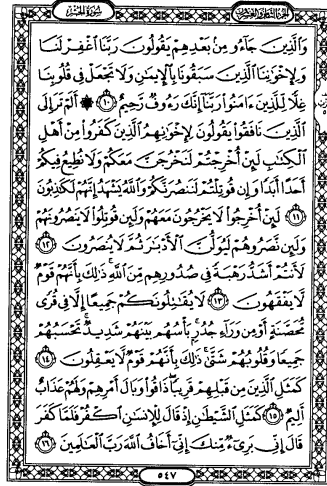 الجزء الثامن والعشرون
سورة الحشر
وَالَّذِينَ جَاءُو مِنۢ بَعْدِهِمْ يَقُولُونَ رَبَّنَا اغْفِرْ لَنَا
وَلِإِخْوَٰنِنَا الَّذِينَ سَبَقُونَا بِالْإِيمَٰنِ وَلَا تَجْعَلْ فِى قُلُوبِنَا
غِلًّا لِّلَّذِينَ ءَامَنُوا رَبَّنَا إِنَّكَ رَءُوفٌ رَّحِيمٌ ١٠ ۞ أَلَمْ تَرَ إِلَى
الَّذِينَ نَافَقُوا يَقُولُونَ لِإِخْوَٰنِهِمُ الَّذِينَ كَفَرُوا مِنْ أَهْلِ
الْكِتَٰبِ لَئِنْ أُخْرِجْتُمْ لَنَخْرُجَنَّ مَعَكُمْ وَلَا نُطِيعُ فِيكُمْ
أَحَدًا أَبَدًا وَإِن قُوتِلْتُمْ لَنَنصُرَنَّكُمْ وَاللَّهُ يَشْهَدُ إِنَّهُمْ لَكَٰذِبُونَ
١١ لَئِنْ أُخْرِجُوا لَا يَخْرُجُونَ مَعَهُمْ وَلَئِن قُوتِلُوا لَا يَنصُرُونَهُمْ
وَلَئِن نَّصَرُوهُمْ لَيُوَلُّنَّ الْأَدْبَٰرَ ثُمَّ لَا يُنصَرُونَ ١٢
لَأَنتُمْ أَشَدُّ رَهْبَةً فِى صُدُورِهِم مِّنَ اللَّهِ ذَٰلِكَ بِأَنَّهُمْ قَوْمٌ
لَّا يَفْقَهُونَ ١٣ لَا يُقَٰتِلُونَكُمْ جَمِيعًا إِلَّا فِى قُرًى
مُّحَصَّنَةٍ أَوْ مِن وَرَاءِ جُدُرٍ بَأْسُهُم بَيْنَهُمْ شَدِيدٌ تَحْسَبُهُمْ
جَمِيعًا وَقُلُوبُهُمْ شَتَّىٰ ذَٰلِكَ بِأَنَّهُمْ قَوْمٌ لَّا يَعْقِلُونَ ١٤
كَمَثَلِ الَّذِينَ مِن قَبْلِهِمْ قَرِيبًا ذَاقُوا وَبَالَ أَمْرِهِمْ وَلَهُمْ عَذَابٌ
أَلِيمٌ ١٥ كَمَثَلِ الشَّيْطَٰنِ إِذْ قَالَ لِلْإِنسَٰنِ اكْفُرْ فَلَمَّا كَفَرَ
قَالَ إِنِّى بَرِىءٌ مِّنكَ إِنِّى أَخَافُ اللَّهَ رَبَّ الْعَٰلَمِينَ ١٦
٥٤٧